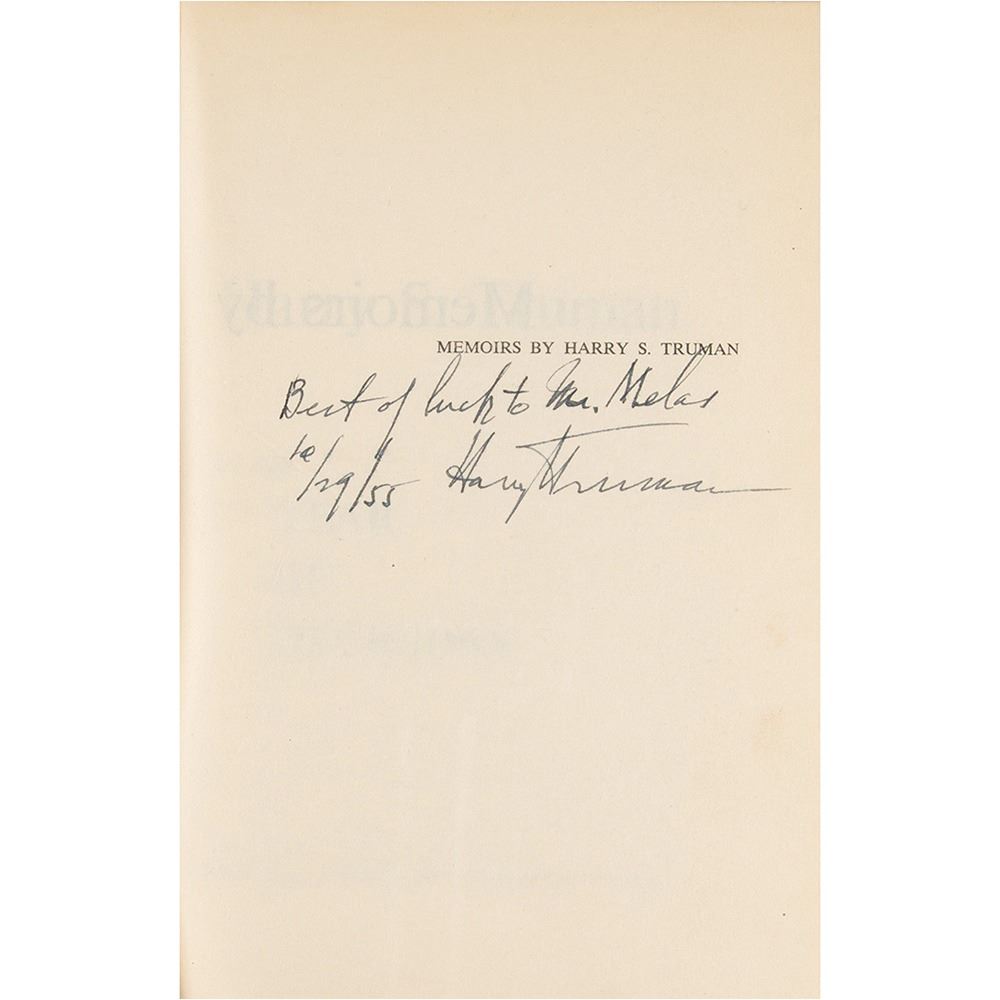 MEMOIRS BY HARRY S. TRUMAN
Best of luck to Mr. Melas
10/29/55 Harry Truman